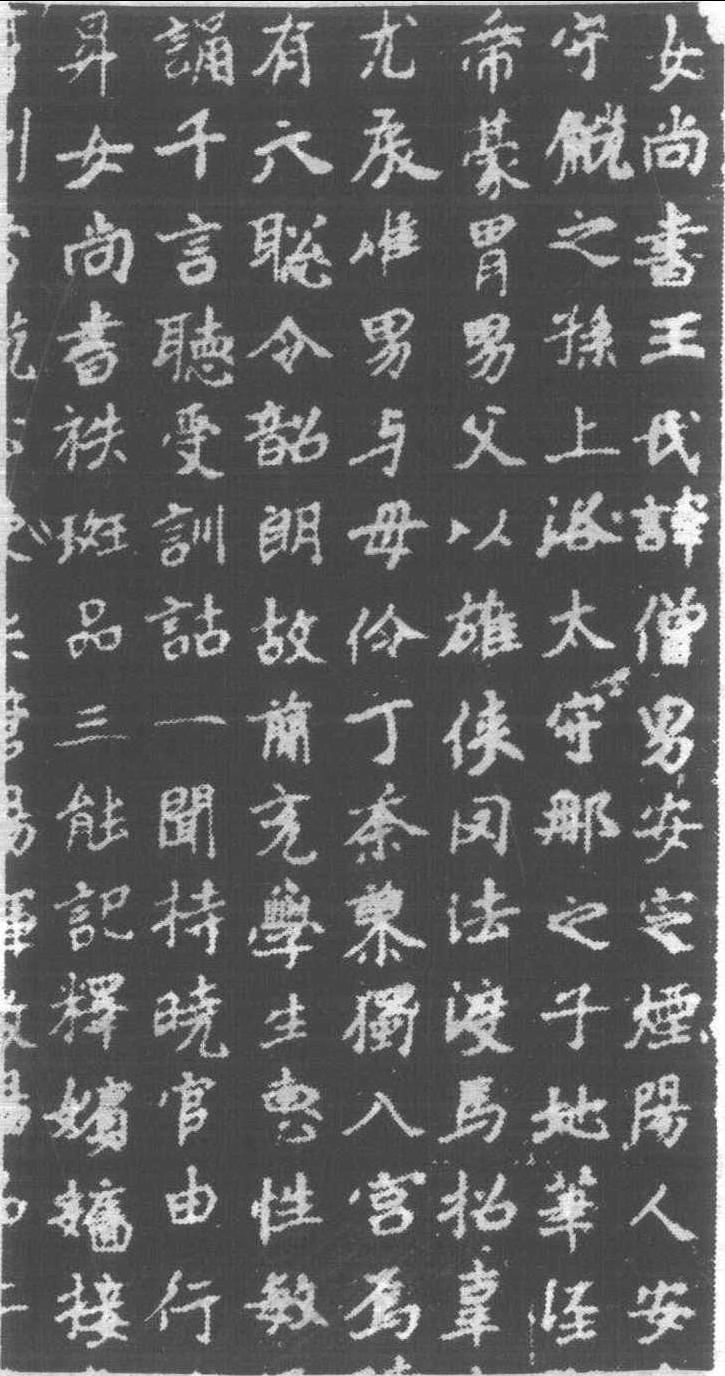 女尚書王氏諱僧男安定煙陽人安
守觥之孫上洛太守那之子地華涇
帝豪胄男父以雄俠罔法渡馬招辜
尤戾唯男与母伶丁荼蓼獨入宮焉
有六聰令韶朗故簡充學生惠性敏
誦千言聽受訓詁一聞持曉官由行
昇女尚書秩班品三能記釋嬪嬙接